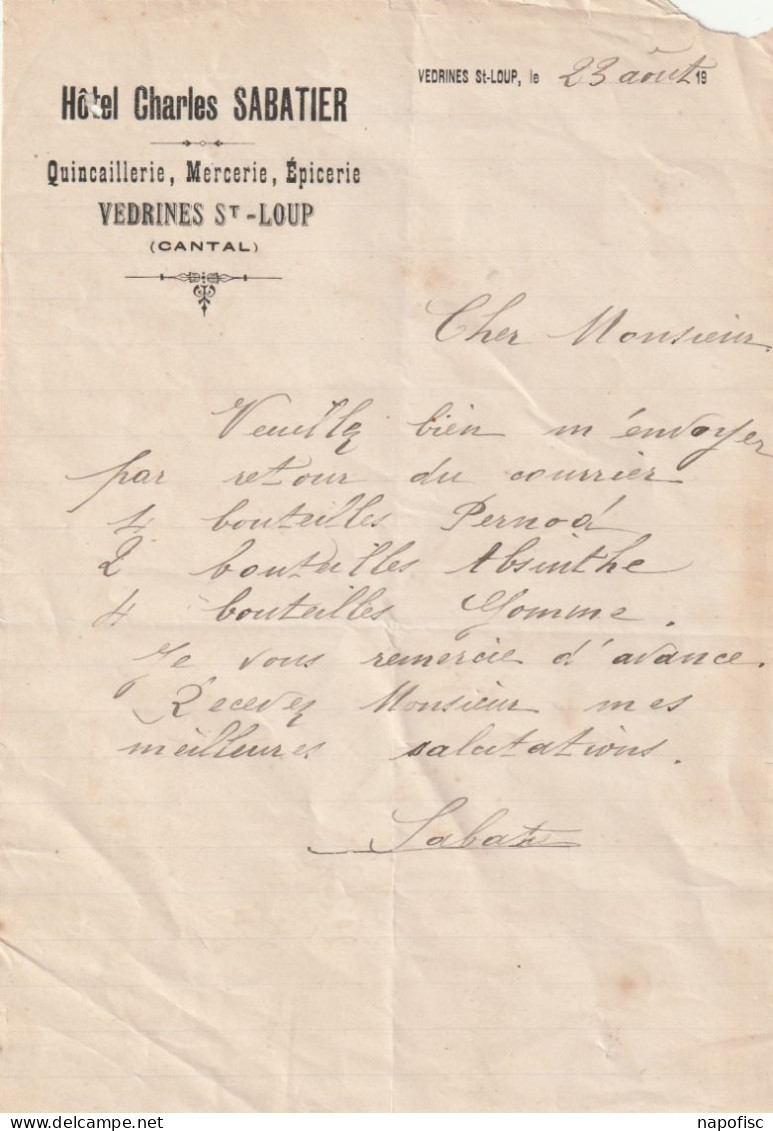 Hôtel Charles SABATIER
Quincaillerie, Mercerie, Épicerie
VEDRINES ST-LOUP
(CANTAL)
VEDRINES St-LOUP, le 23 août 19
Cher Monsieur.
Veuillez bien m'envoyer
par retour du courrier
4 bouteilles Pernod
2 bouteilles Absinthe
4 bouteilles Gomme.
Je vous remercie d'avance.
Recevez Monsieur mes
meilleures salutations.
Sabatier
napofisc